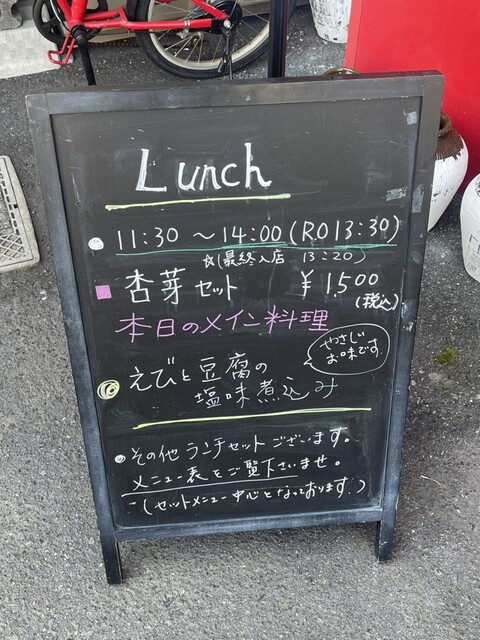 Lunch
11:30 ～14:00 (RO13:30)
☆(最終入店 13:20)
杏芽セット ¥1,500
(税込)
本日のメイン料理
えびと豆腐の
塩味煮込み
やさしい
お味です。
その他ランチセットございます。
メニュー表をご覧下さいませ。
(セットメニュー中心となっております。)